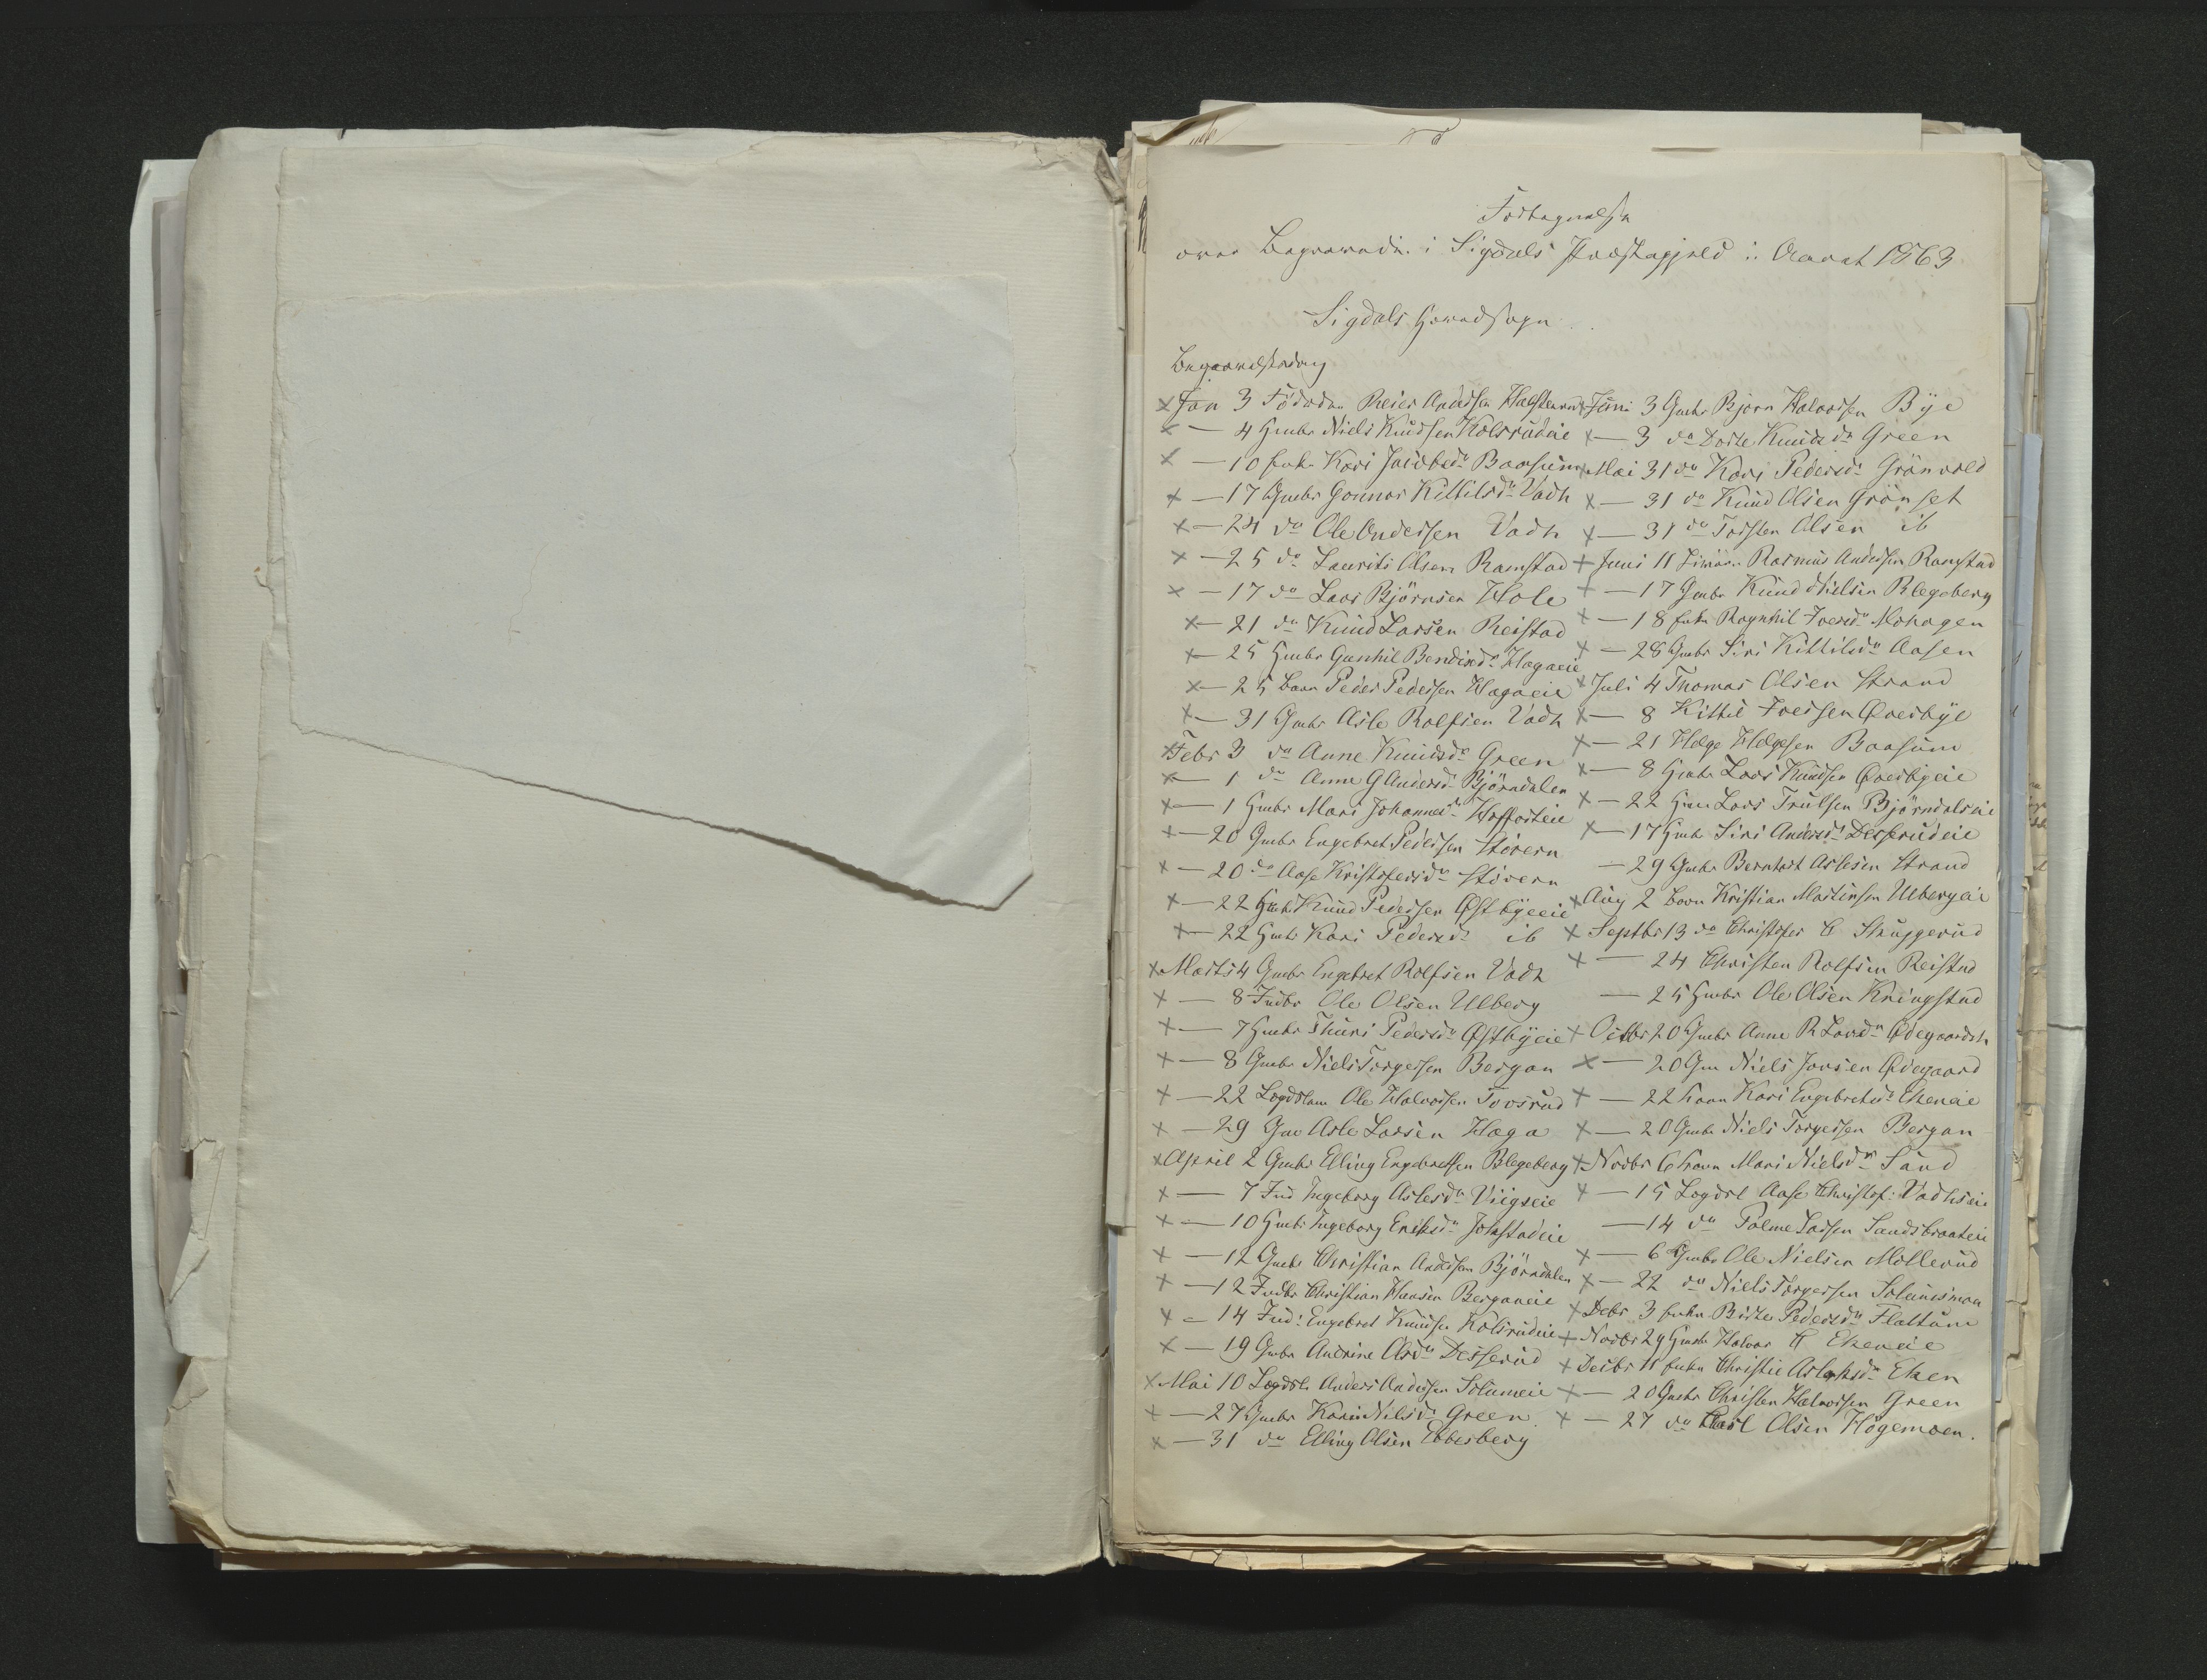 Fortegnelse
over Begravede i Sigdals Præstegjeld i Aaret 1863
Sigdals Hovedsogn
Begravelsesdag
× Jan 3 Föderm Reier Andersen
× — 4 Gmbr Niels Knudsen Kolsrudeie
× — 10 fruk Kari Jacobsdr Baasum
× — 17 Gmbr Gunnor Kittilsdr Vadh
× — 24 do Ole Andersen Vadh
× — 25 do Laurits Olsen Ramstad
× — 17 do Lars Björnsen Hole
× — 21 do Knud Larsen Reistad
× — 25 Hmbr Gunhil Bendixdr Hagaeie
× — 25 barn Peder Pedersen Hagaeie
× — 31 Gmbr Asle Rolfsen Vadh
× Febr 3 do Anne Knudsdr Green
× — 1 do Anne G Andersdr Björndalen
× — 1 Hmbr Mari Johannesdr Hofforteie
× — 20 Gmbr Engebret Pedersen Støvern
× — 20 do Aase Kristofersdr Støvern
× — 22 Hmbr Knud Pedersen Østbyeeie
× — 22 Hmbr Kari Pedersdr ib
× Marts 4 Gmbr Engebret Rolfsen Vadh
× — 8 Indbr Ole Olsen Ulberg
× — 7 Hmbr Thuri Pedersdr Østbyeie
× — 8 Gmbr Niels Torgersen Bergan
× — 22 Ole Halvorsen Tovsrud
× — 29 Gm Asle Larsen Haga
× April 2 Gmbr Elling Engebretsen Blegeberg
× — 7 Ind Ingeborg Aslesdr Viigseie
× — 10 Hmbr Ingeborg Eriksdr Jokstadeie
× — 12 Gmbr Christian Andersen Björndalen
× — 12 Indbr Christian Hansen Berganeie
× — 14 Ind: Engebret Knudsen Kolsrudeie
× — 19 Gmbr Andrine Olsdr Desserud
× Mai 10 Lægdsl Anders Andersen Solumeie
× — 27 Gmbr Kari Nilsdr Green
× — 31 do Elling Olsen Ebbesberg
× Juni 3 Gmbr Bjorn Halvorsen Bye
× — 3 do Dorte Knudsdr Green
× Mai 31 do Kari Pedersdr Grönvold
× — 31 do Knud Olsen Grönset
× — 31 do Torsten Olsen ib
× Juni 11 Rasmus Andersen Ramstad
× — 17 Gmbr Knud Nielsen Blegeberg
× — 18 fruk Ragnhil Iversdr Mohagen
× — 28 Gmbr Siri Kittilsdr Aasen
× Juli 4 Thomas Olsen Strand
× — 8 Kittil Iversen Øverbye
× — 21 Helge Helgesen Baasum
× — 8 Hmbr Lars Knudsen Øverbyeie
× — 22 Hm Lars Trulsen Björndalseie
× — 17 Hmbr Siri Andersdr Desserudeie
— 29 Gmbr Berntart Aslesen Strand
× Aug 2 barn Kristian Martinsen Ulbergeie
× Septbr 13 do Christofer C Skuggerud
× — 24 Christen Rolfsen Reistad
— 25 Gmbr Ole Olsen Kringstad
× Octbr 20 Gmbr Anne R Larsdr Ødegaard
× — 20 Gm Niels Jonsen Ødegaard
× — 22 barn Kari Engebretsdr Ekeneie
× — 20 Gmbr Niels Torgersen Bergan
× Novbr 6 barn Mari Nielsdr Sand
× — 15 Lægdsl Aase Christof: Vadhseie
— 14 do Palme Larsen Sandsbraateie
× — 6 Gmbr Ole Nielsen Möllerud
× — 22 do Niels Torgersen Solumsmoen
× Debr 3 fruk Birte Pedersdr Flattum
× Novbr 29 Hmbr Halvor H Ekeneie
× Decbr 11 fruk Christie Aslaksdr Eken
× — 20 Gmbr Christen Halvorsen Green
× — 27 do Carl Olsen Högemoen.